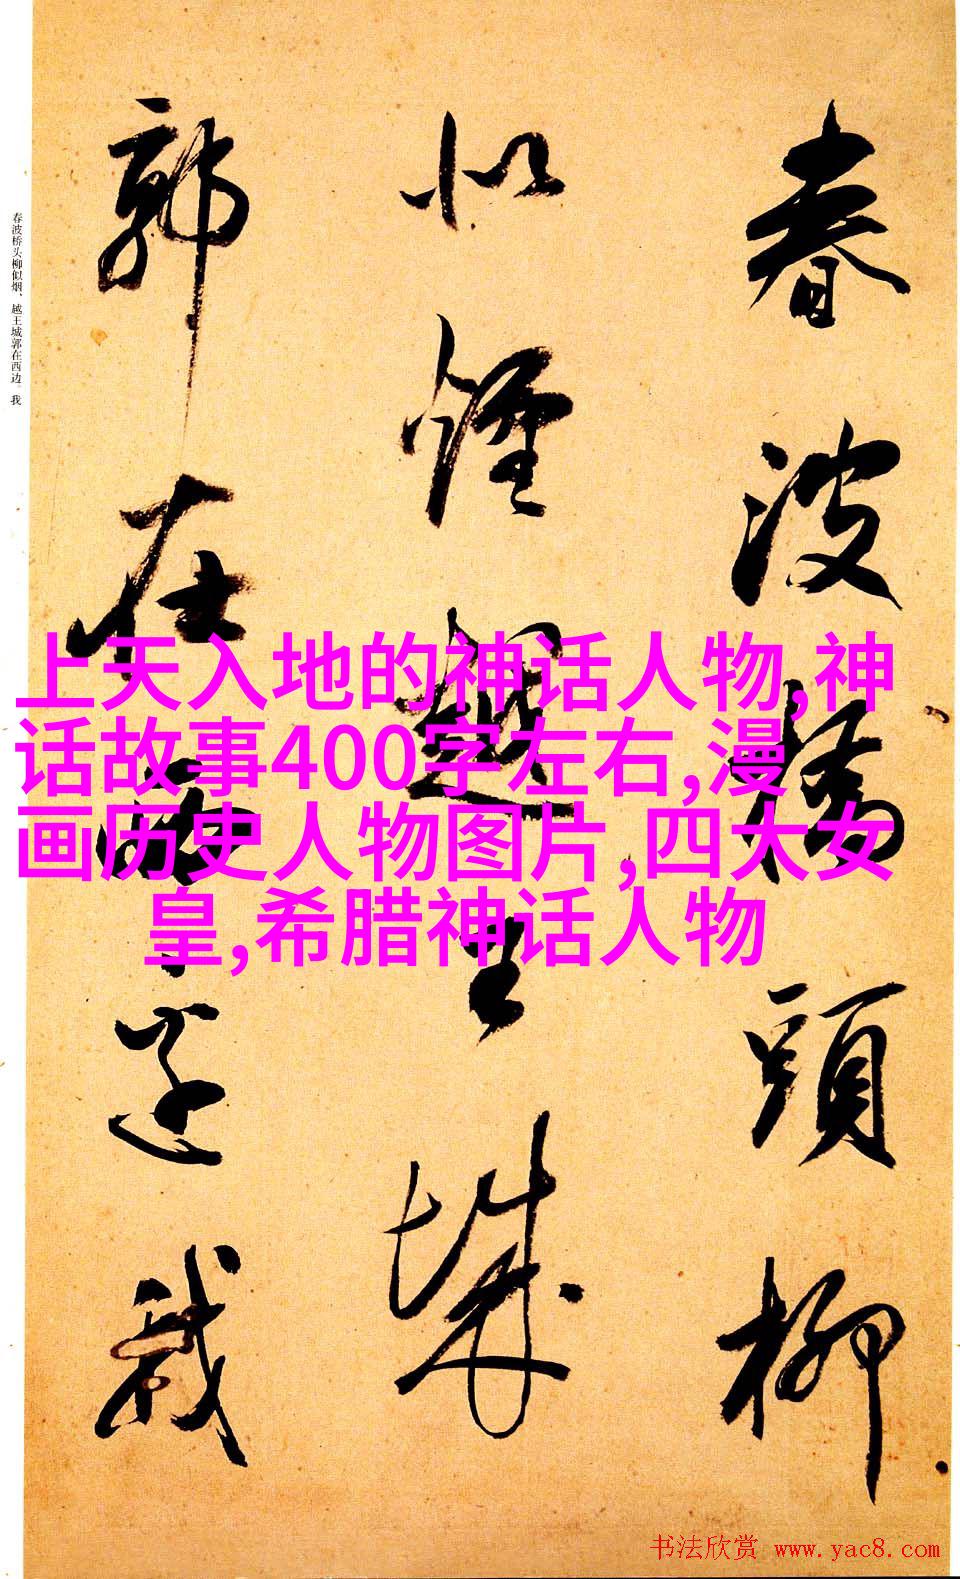 春波橋頭柳
似煙越王城
郭在西邊我
春波桥头柳似烟、越王城郭在西边。我
上天入地的神话人物,神
话故事400字左右,漫
画历史人物图片,四大女
皇,希腊神话人物
书法欣赏 www.yac8.com